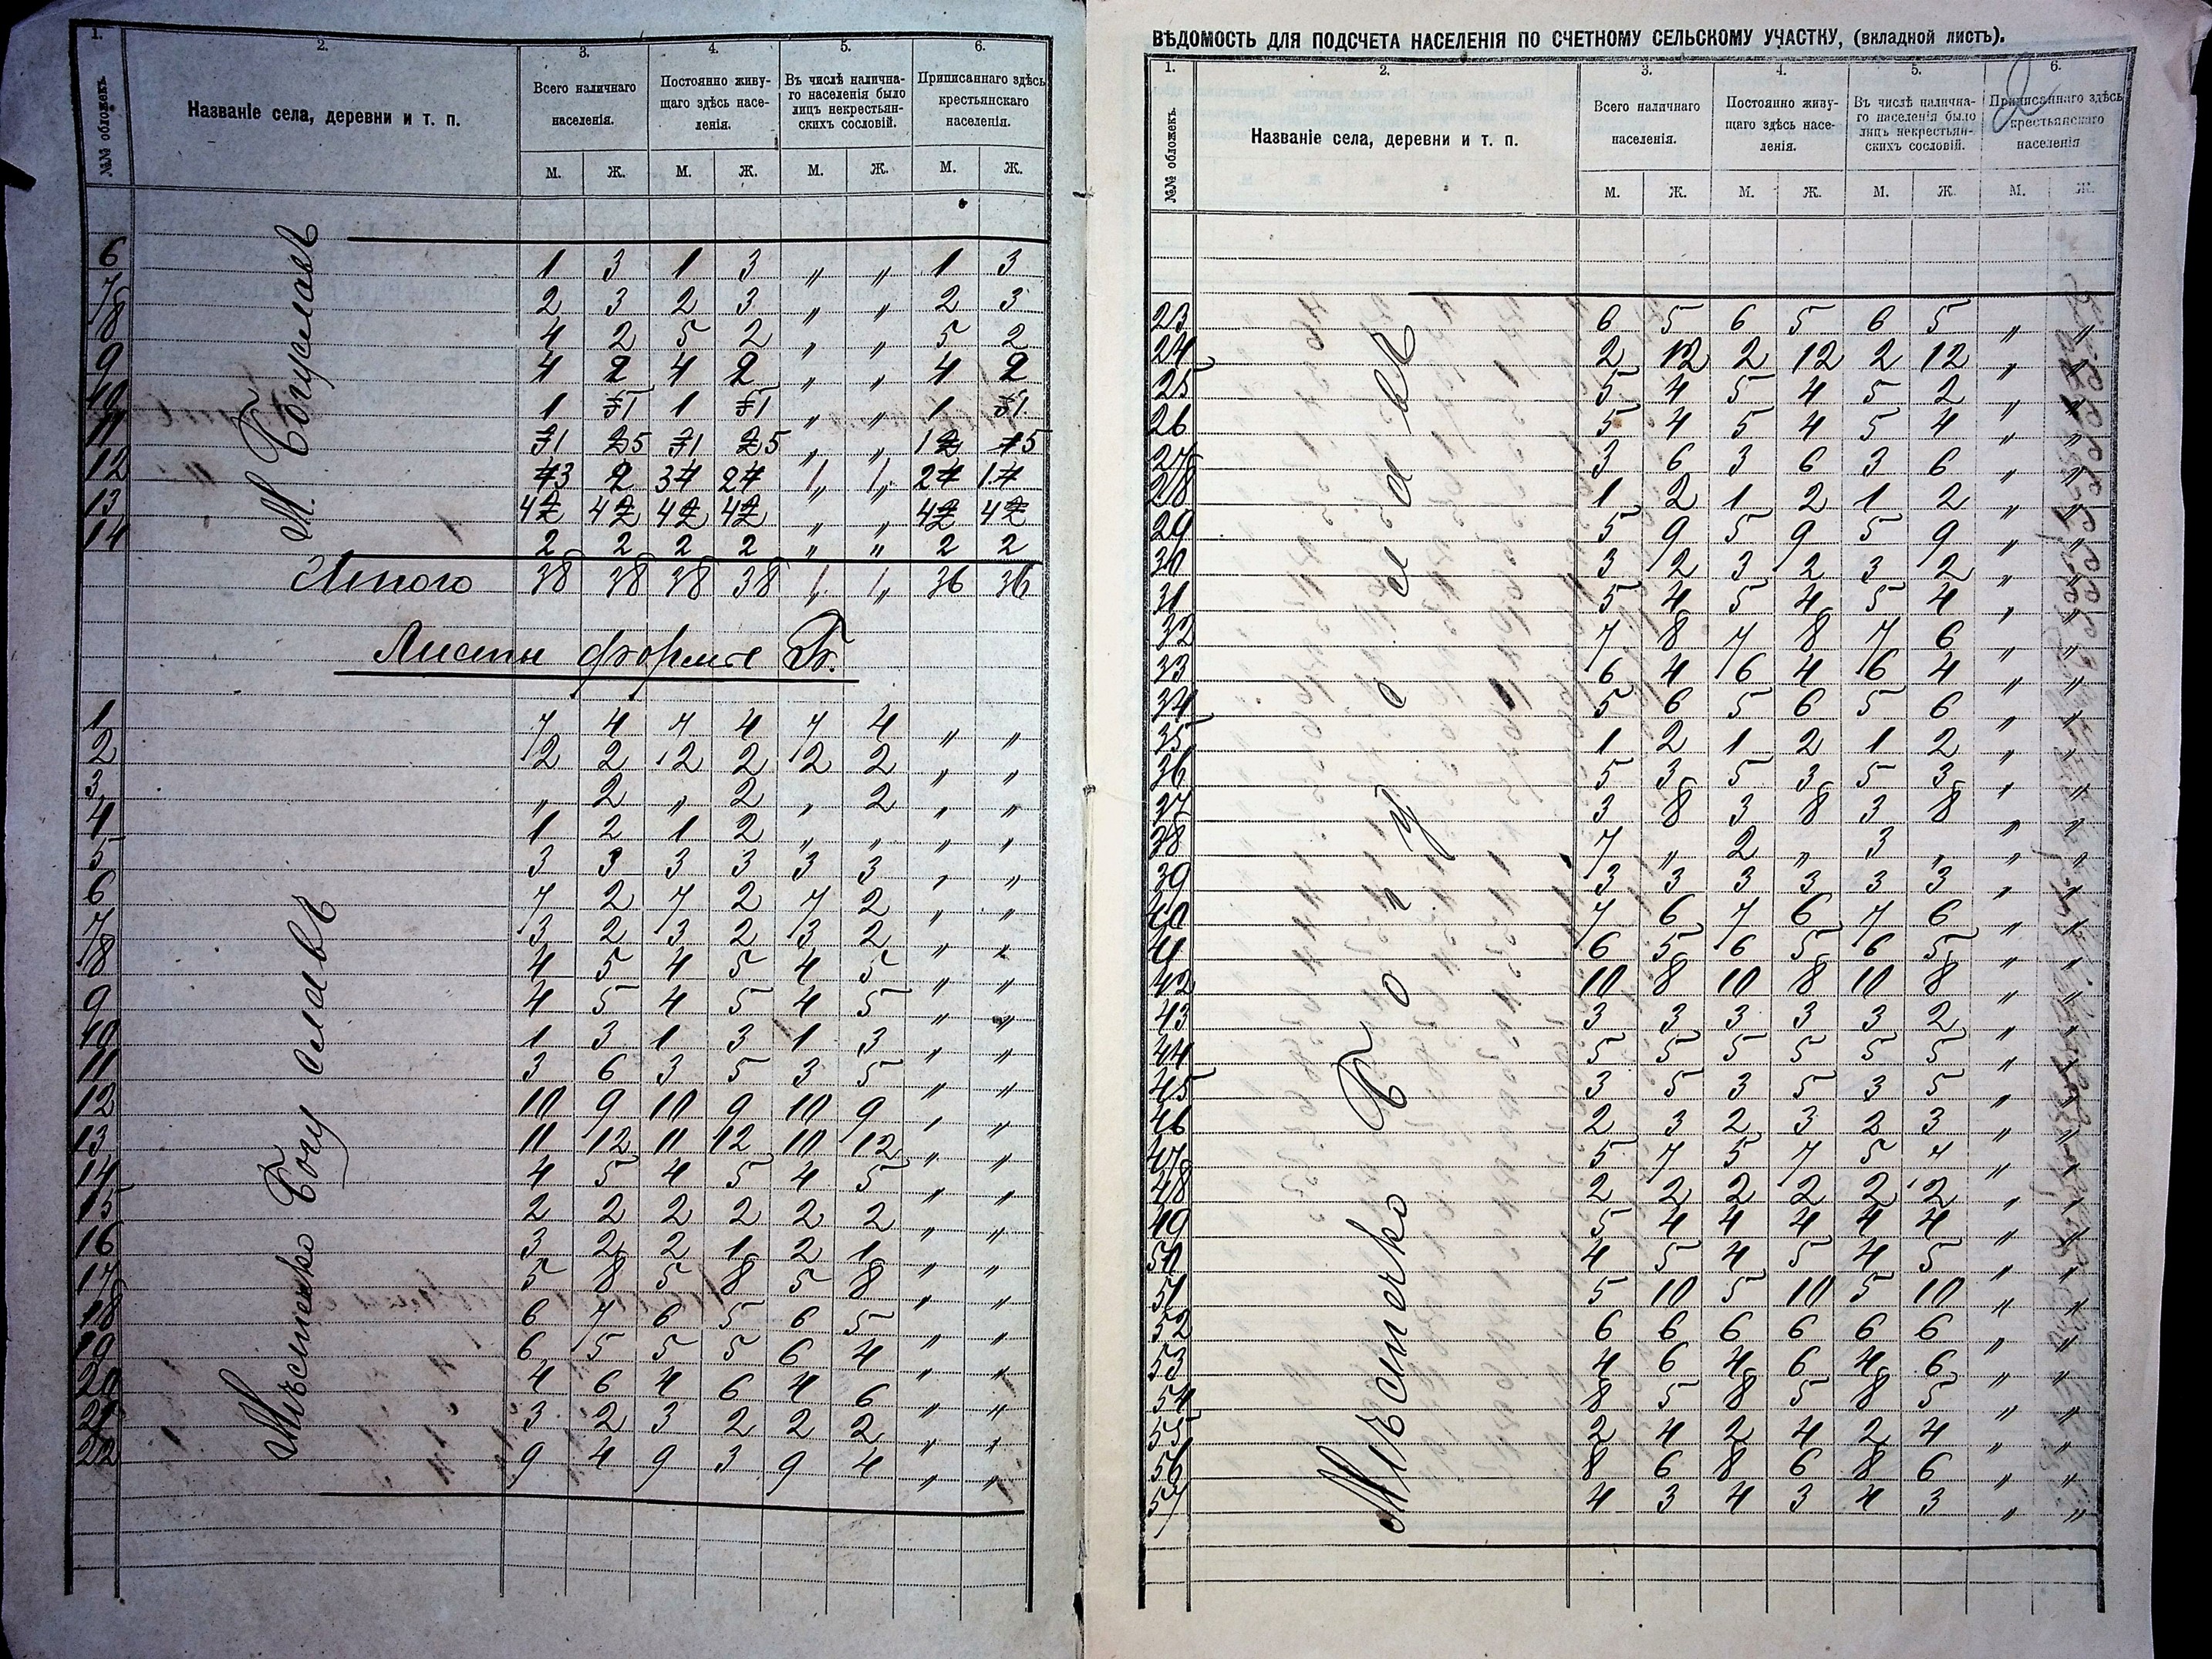 1. 2. 3. 4. 5. 6.
№№ обложекъ.
Названіе села, деревни и т. п.
Всего наличнаго населенія.
Постоянно живущаго здѣсь населенія.
Въ числѣ наличнаго населенія было лицъ некрестьянскихъ сословій.
Приписаннаго здѣсь крестьянскаго населенія.
М. Ж. М. Ж. М. Ж. М. Ж.
М. Богуславъ
6 1 3 1 3 „ „ 1 3
7 2 3 2 3 „ „ 2 3
8 4 2 5 2 „ „ 5 2
9 4 2 4 2 „ „ 4 2
10 1 1 1 1 „ „ 1 1
11 1 5 1 5 „ „ 1 5
12 3 2 3 2 1 1 2 1
13 4 4 4 4 „ „ 4 4
14 2 2 2 2 „ „ 2 2
Итого 38 38 38 38 1 1 36 36
Листы формы Б.
Мѣстечко Богуславъ
1 7 4 7 4 7 4 „ „
2 2 2 2 2 2 2 „ „
3 „ 2 „ 2 „ 2 „ „
4 1 2 1 2 „ „ „ „
5 3 3 3 3 3 3 „ „
6 7 2 7 2 7 2 „ „
7 3 2 3 2 3 2 „ „
8 4 5 4 5 4 5 „ „
9 4 5 4 5 4 5 „ „
10 1 3 1 3 1 3 „ „
11 3 6 3 5 3 5 „ „
12 10 9 10 9 10 9 „ „
13 11 12 11 12 10 12 „ „
14 4 5 4 5 4 5 „ „
15 2 2 2 2 2 2 „ „
16 3 2 2 1 2 1 „ „
17 5 8 5 8 5 8 „ „
18 6 7 6 5 6 5 „ „
19 6 5 5 5 6 4 „ „
20 4 6 4 6 4 6 „ „
21 3 2 3 2 2 2 „ „
22 9 4 9 3 9 4 „ „
ВѢДОМОСТЬ ДЛЯ ПОДСЧЕТА НАСЕЛЕНІЯ ПО СЧЕТНОМУ СЕЛЬСКОМУ УЧАСТКУ, (вкладной листъ).
2
1. 2. 3. 4. 5. 6.
№№ обложекъ.
Названіе села, деревни и т. п.
Всего наличнаго населенія.
Постоянно живущаго здѣсь населенія.
Въ числѣ наличнаго населенія было лицъ некрестьянскихъ сословій.
Приписаннаго здѣсь крестьянскаго населенія
М. Ж. М. Ж. М. Ж. М. Ж.
Мѣстечко Богуславъ
23 6 5 6 5 6 5 „ „
24 2 12 2 12 2 12 „ „
25 5 4 5 4 5 2 „ „
26 5 4 5 4 5 4 „ „
27 3 6 3 6 3 6 „ „
28 1 2 1 2 1 2 „ „
29 5 9 5 9 5 9 „ „
30 3 2 3 2 3 2 „ „
31 5 4 5 4 5 4 „ „
32 7 8 7 8 7 6 „ „
33 6 4 6 4 6 4 „ „
34 5 6 5 6 5 6 „ „
35 1 2 1 2 1 2 „ „
36 5 3 5 3 5 3 „ „
37 3 8 3 8 3 8 „ „
38 7 „ 2 „ 3 „ „ „
39 3 3 3 3 3 3 „ „
40 7 6 7 6 7 6 „ „
41 6 5 6 5 6 5 „ „
42 10 8 10 8 10 8 „ „
43 3 3 3 3 3 2 „ „
44 5 5 5 5 5 5 „ „
45 3 5 3 5 3 5 „ „
46 2 3 2 3 2 3 „ „
47 5 7 5 7 5 7 „ „
48 2 2 2 2 2 2 „ „
49 5 4 4 4 4 4 „ „
50 4 5 4 5 4 5 „ „
51 5 10 5 10 5 10 „ „
52 6 6 6 6 6 6 „ „
53 4 6 4 6 4 6 „ „
54 8 5 8 5 8 5 „ „
55 2 4 2 4 2 4 „ „
56 8 6 8 6 8 6 „ „
57 4 3 4 3 4 3 „ „